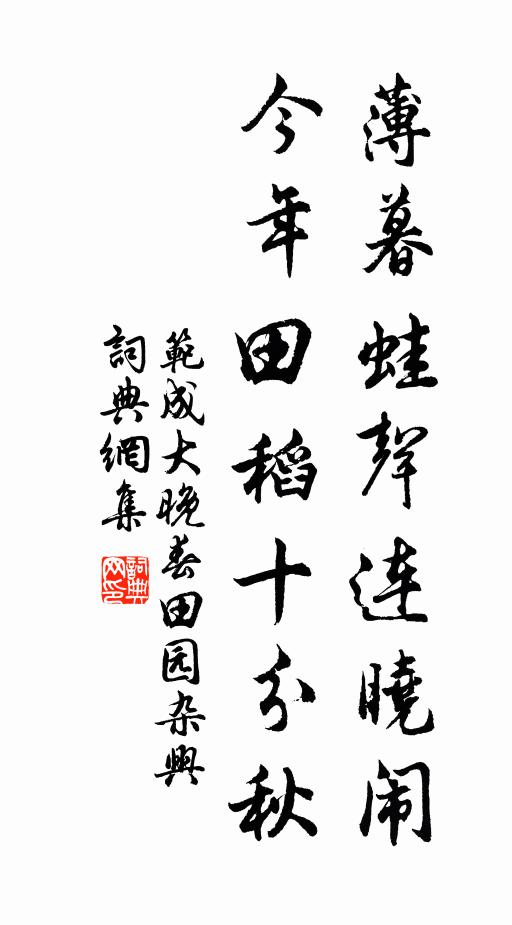 薄暮蛙聲連曉闹
今年田稻十分秋
範成大晚春田园杂興
詞典網集
詞典网印